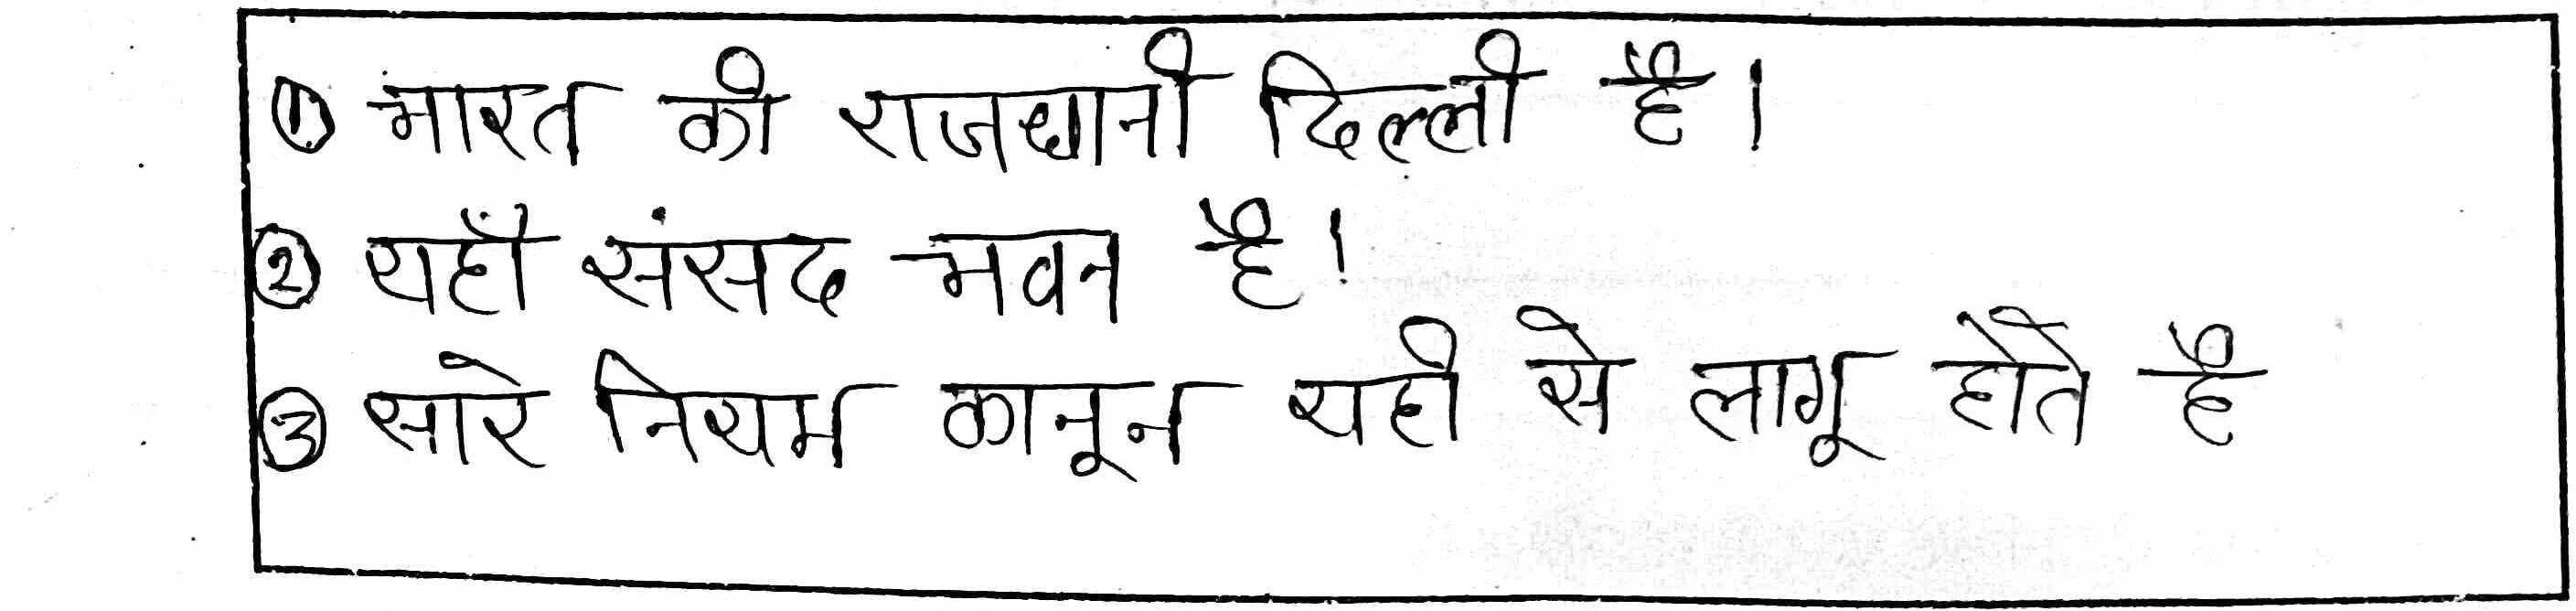 ① भारत की राजधानी दिल्ली है।
② यहाँ संसद भवन है।
③ सारे नियम कानून यही से लागू होते है